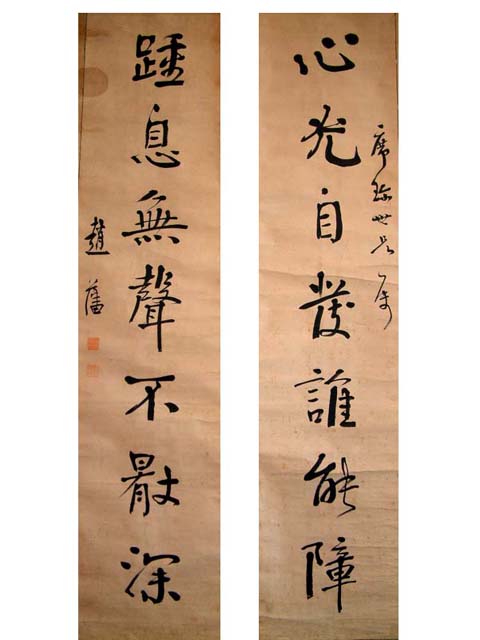 心光自發誰能障
席珍世兄屬
踵息無聲不猒深
趙藩